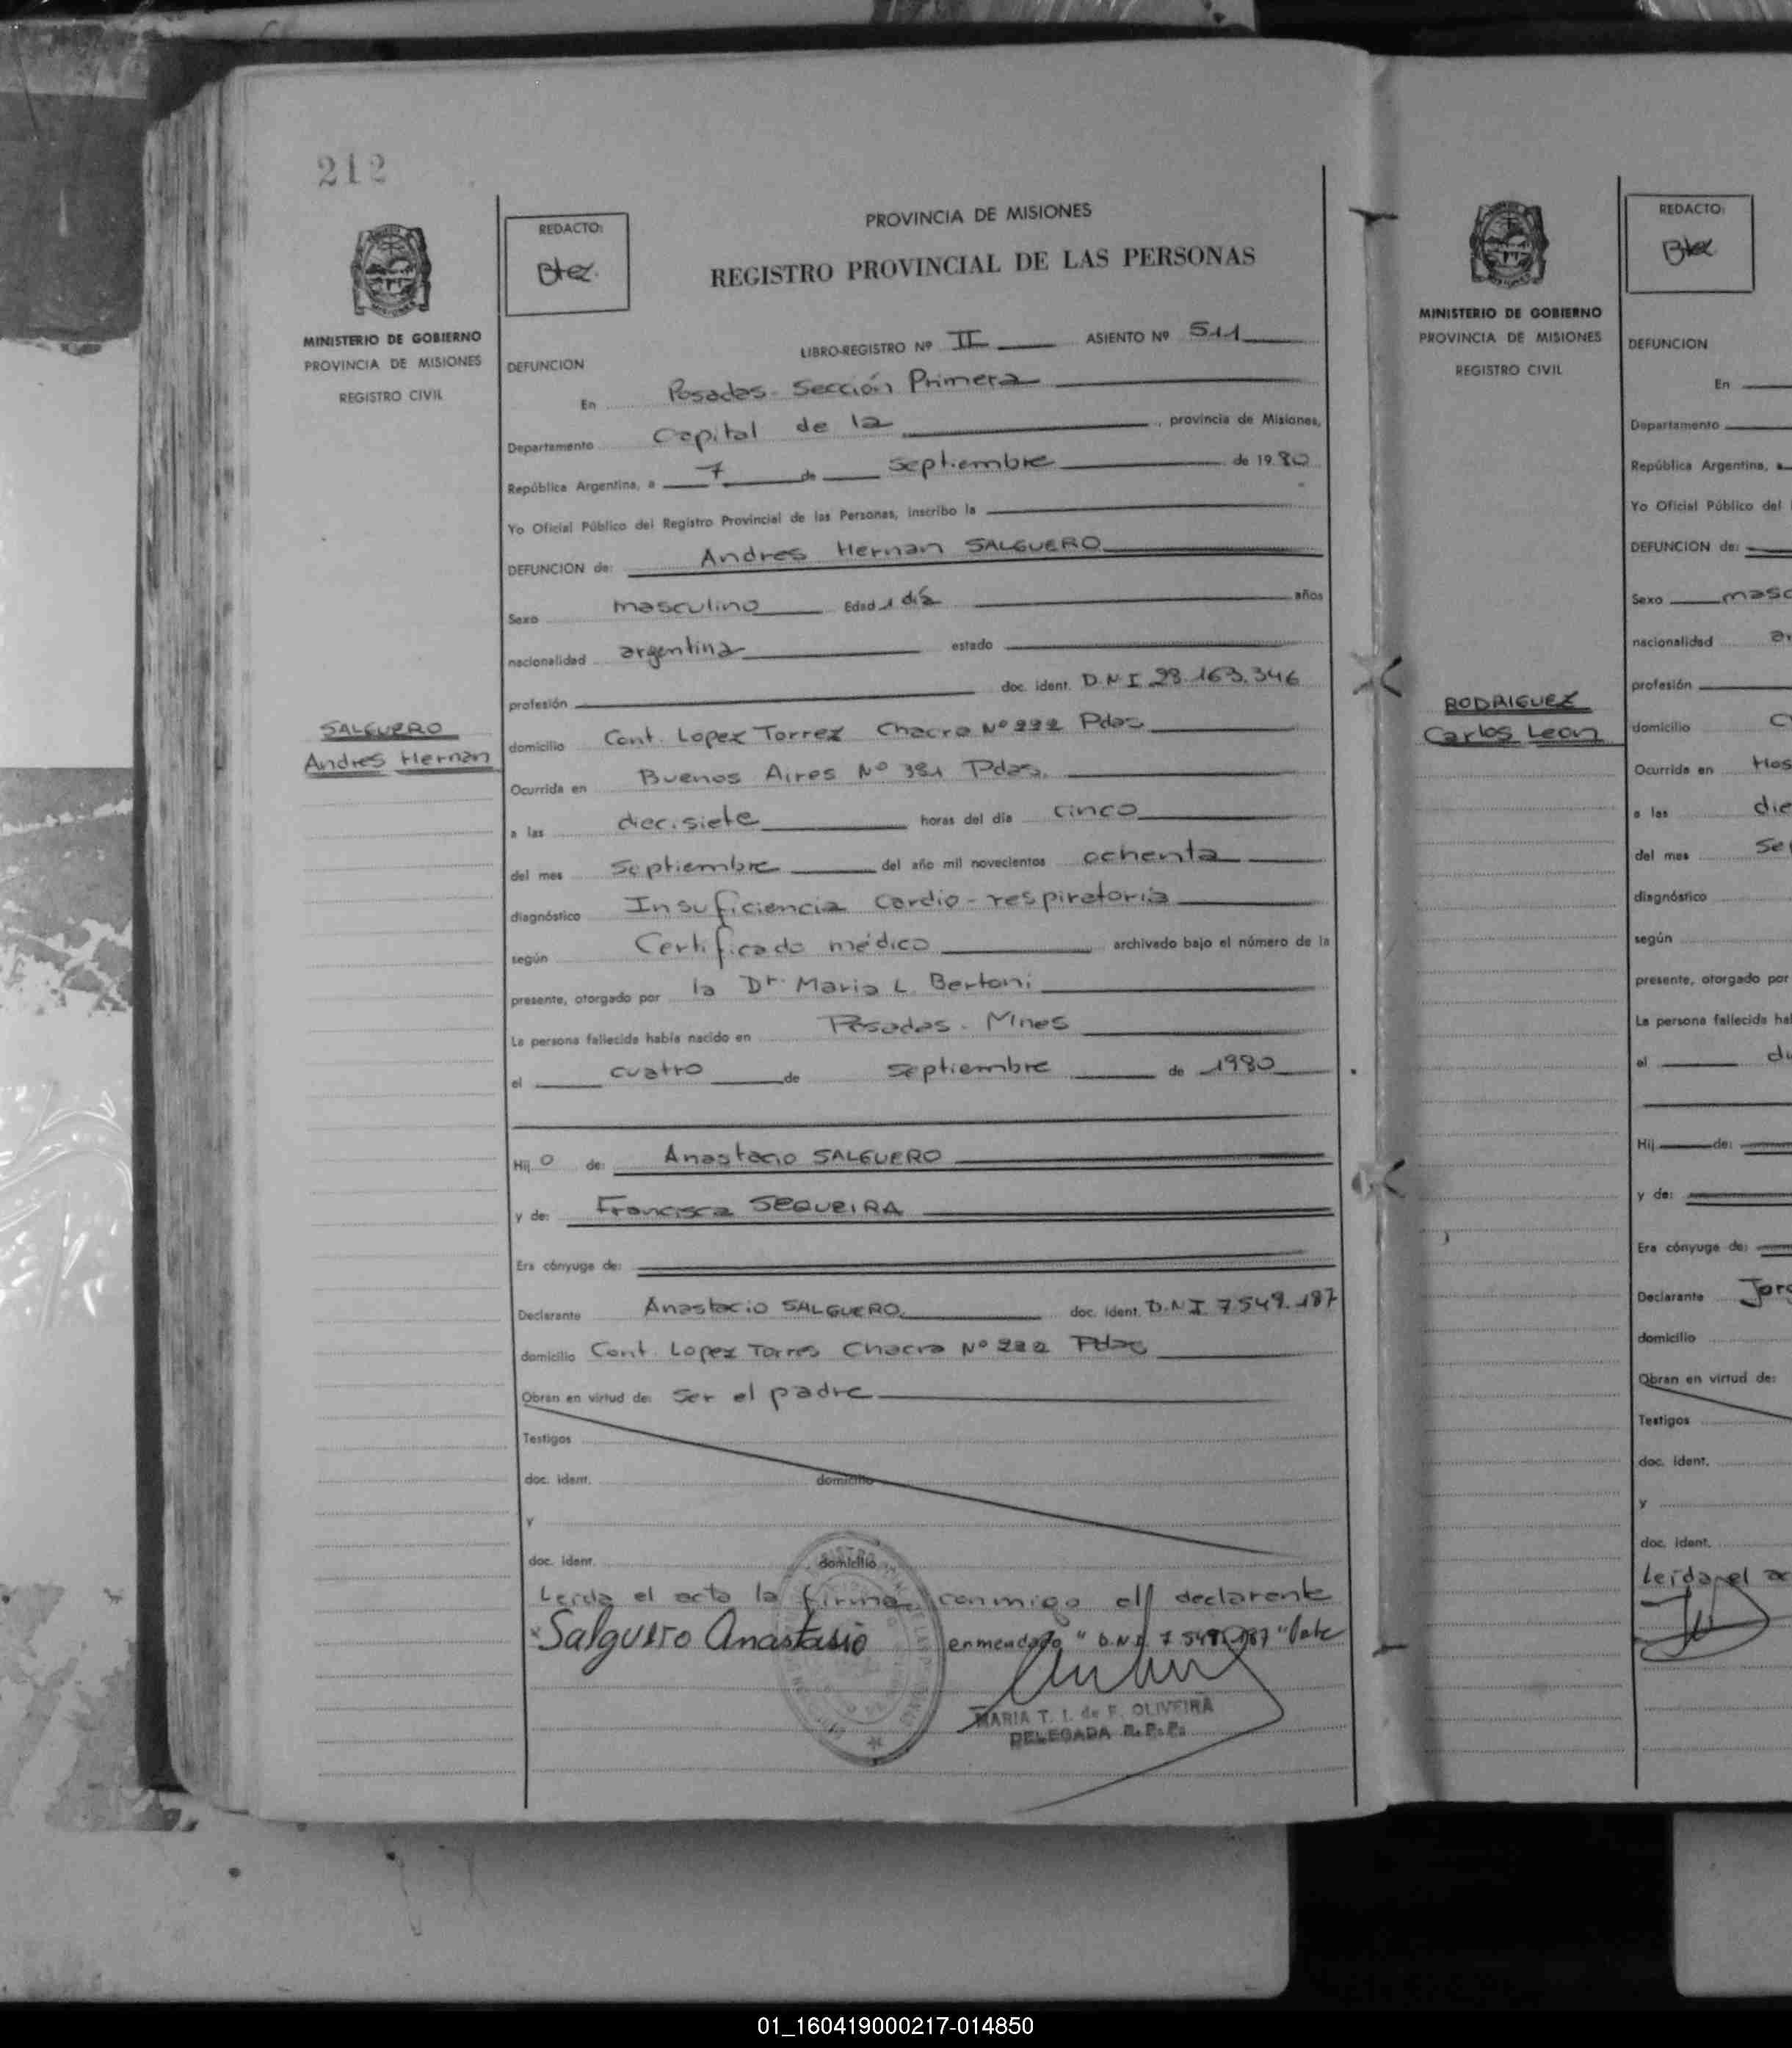 212
MINISTERIO DE GOBIERNO
PROVINCIA DE MISIONES
REGISTRO CIVIL
SALGUERO
Andres Hernan
REDACTO:
Btez.
PROVINCIA DE MISIONES
REGISTRO PROVINCIAL DE LAS PERSONAS
LIBRO-REGISTRO Nº II ASIENTO Nº 511
DEFUNCION
En Posadas - Sección Primera
Departamento Capital de la , provincia de Misiones,
República Argentina, a 7 de Septiembre de 1980
Yo Oficial Público del Registro Provincial de las Personas, inscribo la
DEFUNCION de: Andres Hernan SALGUERO
Sexo masculino Edad 1 día años
nacionalidad argentina estado
profesión doc. ident. D.N.I 28.163.346
domicilio Cont. Lopez Torrez Chacra Nº 222 Pdas
Ocurrida en Buenos Aires Nº 381 Pdas.
a las diecisiete horas del día cinco
del mes Septiembre del año mil novecientos ochenta
diagnóstico Insuficiencia Cardio-respiratoria
según Certificado médico archivado bajo el número de la
presente, otorgado por la Dr. Maria L. Bertoni
La persona fallecida había nacido en Posadas - Mnes
el cuatro de septiembre de 1980
Hij o de: Anastacio SALGUERO
y de: Francisca SEQUEIRA
Era cónyuge de:
Declarante Anastacio SALGUERO doc. ident. D.N.I 7549.187
domicilio Cont. Lopez Torres Chacra Nº 222 Pdas
Obran en virtud de: Ser el padre
Testigos
doc. ident. domicilio
y
doc. ident. domicilio
Leida el acta la firma conmigo el declarante
Salguero Anastasio enmendado "D.N.I. 7549.187" Vale
MARIA T. I. de F. OLIVEIRA
DELEGADA R.P.P.
MINISTERIO DE GOBIERNO
PROVINCIA DE MISIONES
REGISTRO CIVIL
RODRIGUEZ
Carlos Leon
REDACTO:
Btez
DEFUNCION
En
Departamento
República Argentina, a
Yo Oficial Público del
DEFUNCION de:
Sexo masc
nacionalidad a
profesión
domicilio C
Ocurrida en Hos
a las die
del mes Se
diagnóstico
según
presente, otorgado por
La persona fallecida ha
el du
Hij de:
y de:
Era cónyuge de:
Declarante Jor
domicilio
Obran en virtud de:
Testigos
doc. ident.
y
doc. ident.
Leida el ac
01_160419000217-014850